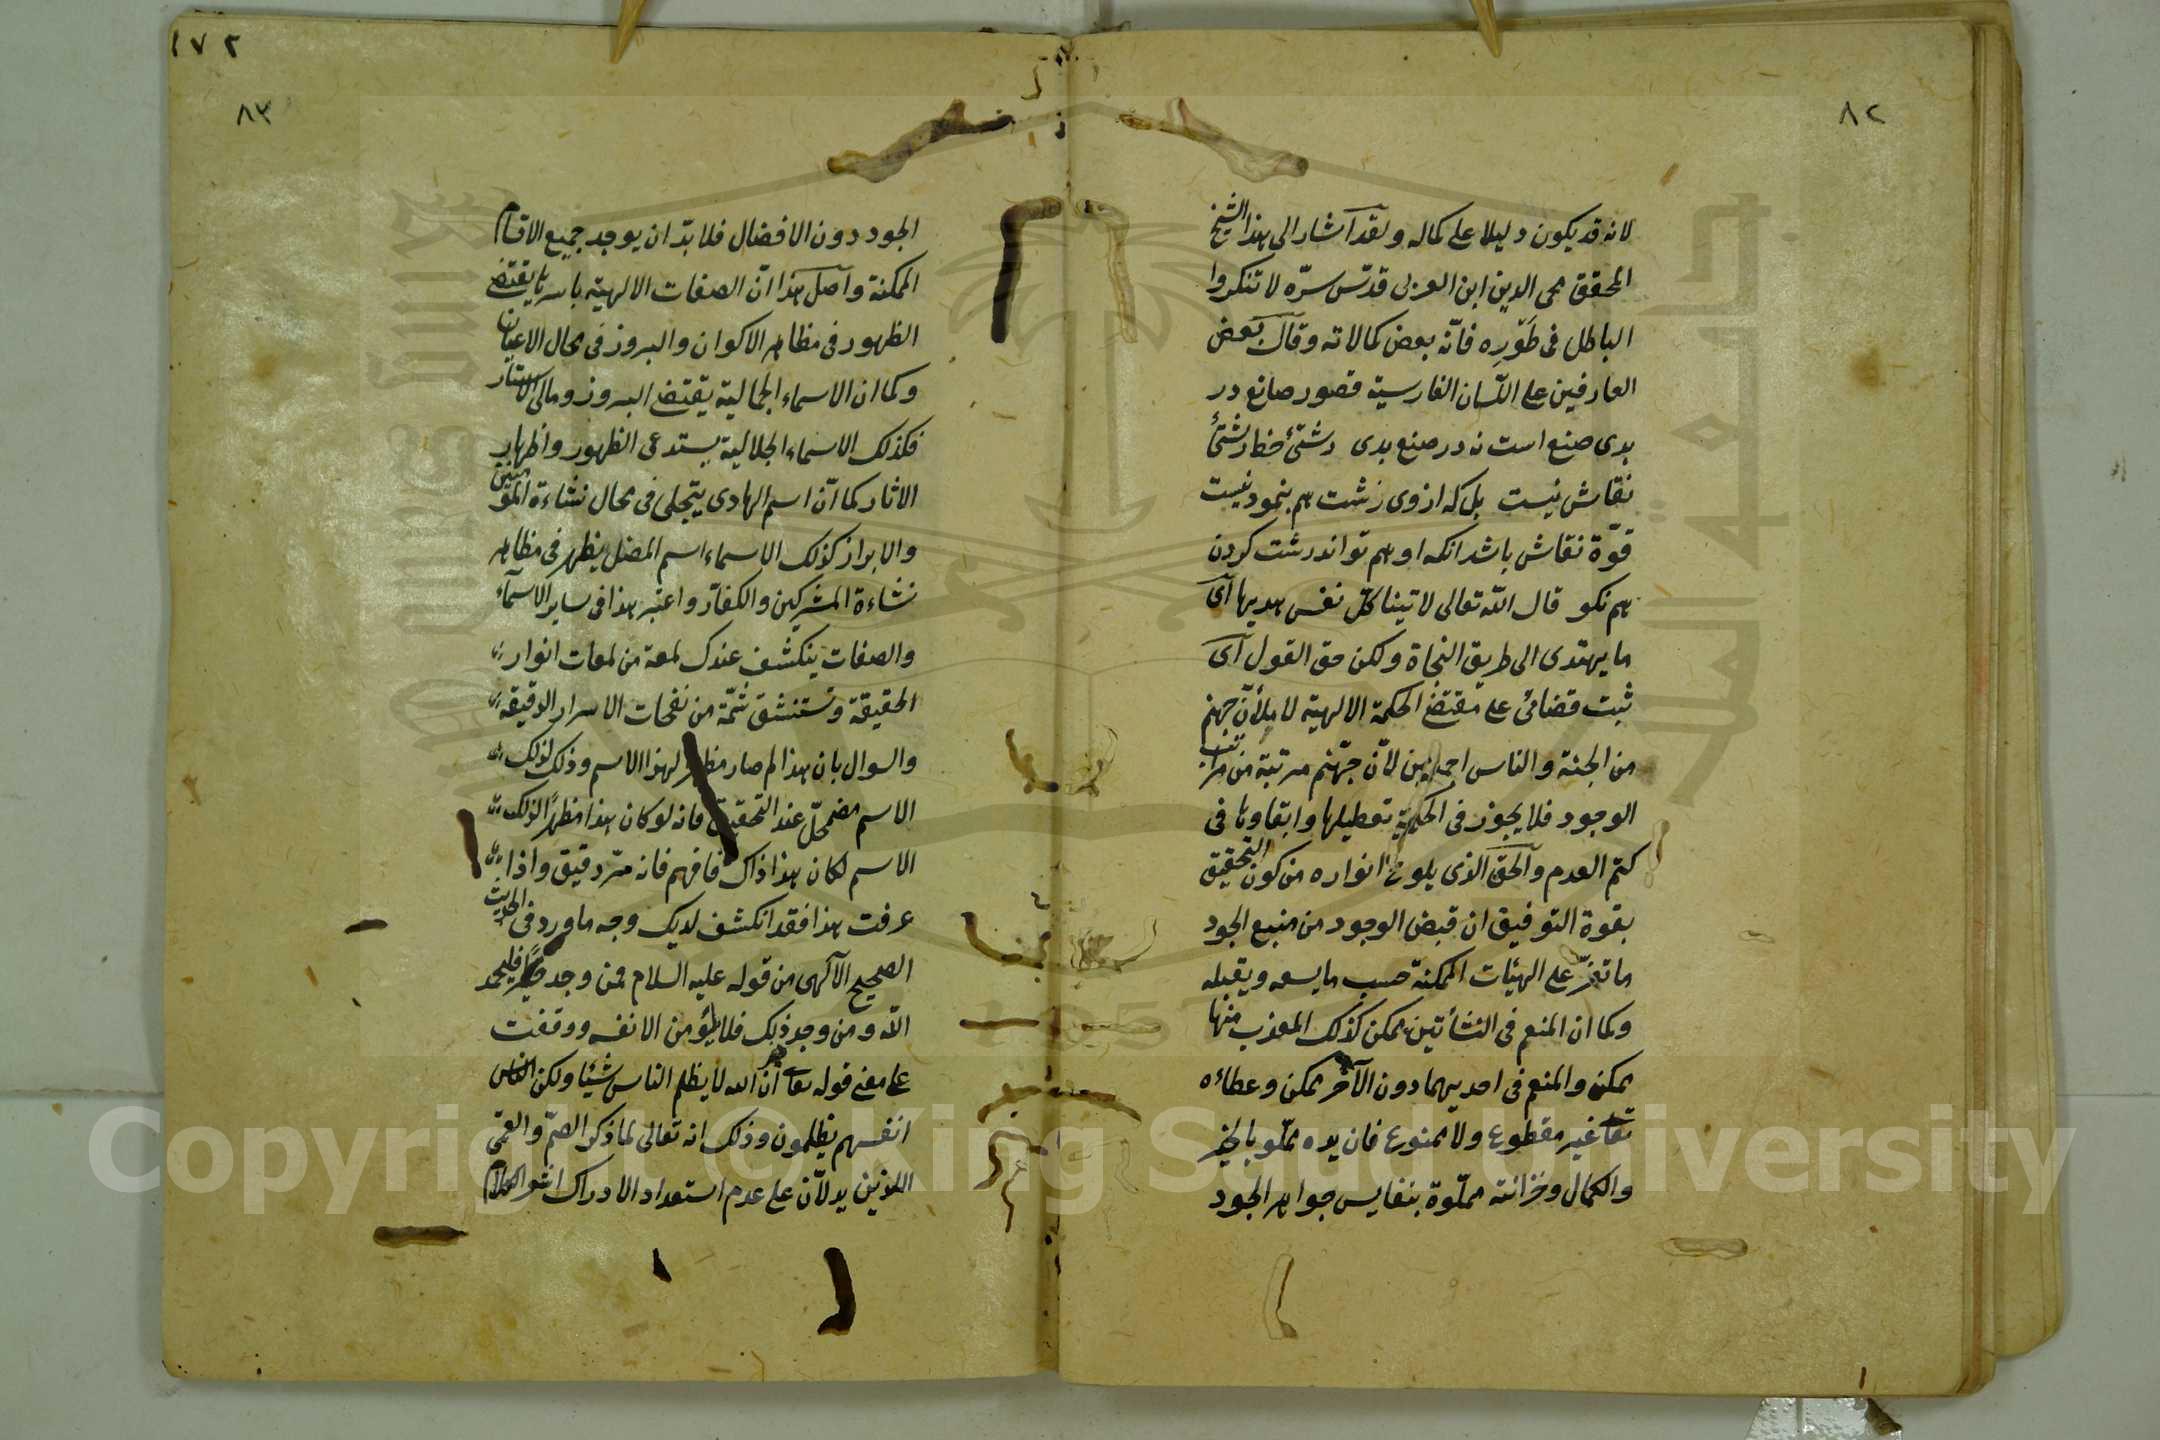 ٨٢
لانه قد يكون دليلا على كماله ولقد اشار الى هذا الشيخ
المحقق محى الدين ابن العربى قدس سرّه لا تنكروا
الباطل فى طوره فانّه بعض كمالاته وقال بعض
العارفين على اللسان الفارسية قصور صانع در
بدى صنع است نه در صنع بدى زشتئ خط زشتئ
نقاش نيست بل كه از وى زشت هم بنمود نيست
قوّة نقاش باشد انكه او هم تواند زشت كردن
هم نكو قال الله تعالى لاتينا كلّ نفس هديها اى
ما يهتدى الى طريق النجاة ولكن حق القول اى
ثبت قضائى على مقتضى الحكمة الالهية لاملأنّ جهنم
من الجنة والناس اجمعين لانّ جهّنم مرتبة من مراتب
الوجود فلا يجوز فى الحكمة تعطيلها وابقاوها فى
كتم العدم والحق الذى يلوح انواره من كون التحقيق
بقوة التوفيق ان فيض الوجود من منبع الجود
على الهيئات الممكنة حسب ما يسعه ويقبله
وكما ان المنعم فى النشأتين ممكن كذلك المعذب منها
ممكن والمنعم فى احديهما دون الآخر ممكن وعطاءه
تعالى غير مقطوع ولا ممنوع فان يده مملّو بالخير
والكمال وخزانته مملّوة بنفايس جواهر الجود
١٧٢
٨٣
الجود دون الافضال فلا بدّ ان يوجد جميع الاقسام
الممكنة واصل هذا انّ الصفات الالهيّه باسرها يقتضى
الظهور فى مظاهر الاكوان والبروز فى مجال الاعيان
وكما ان الاسماء الجمالية يقتضى البروز ومالى الاستار
فكذلك الاسماء الجلالية يستدعى الظهور واظهار
الاثار كما انّ اسم الهادى يتجلى فى مجال نشاءة المؤمنين
والابرار كذلك الاسماء اسم المضل يظهر فى مظاهر
نشاءة المشركين والكفار واعتبر هذا فى ساير الاسماء
والصفات ينكشف عندك لمعة من لمعات انوار
الحقيقة وتستنشق شمّة من نفحات الاسرار الدقيقة
والسوال بان هذا لم صار مظهر لهذا الاسم وذلك لذلك
الاسم مضمحلّ عند التحقيق فانه لو كان هذا مظهرًا لذلك
الاسم لكان هذا ذاك فافهم فانه سرّ دقيق واذا
عرفت هذا فقد انكشف لديك وجه ما ورد فى الحديث
الصحيح الآلهى من قوله عليه السلام فمن وجد خيرًا فليحمد
الله ومن وجد ذلك فلا يلؤمن الا نفسه ووقفت
على معنى قوله تعالى ان الله لا يظلم الناس شيئا ولكن الناس
انفسهم يظلمون وذلك انه تعالى لما ذكر الصمّ والعمى
اللذين يدلاّن على عدم استعداد الادراك
Copyright © King Saud University
1957